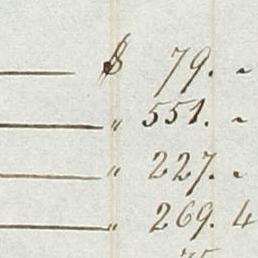 $ 79. -
" 551. -
" 227. -
" 269. 4
75